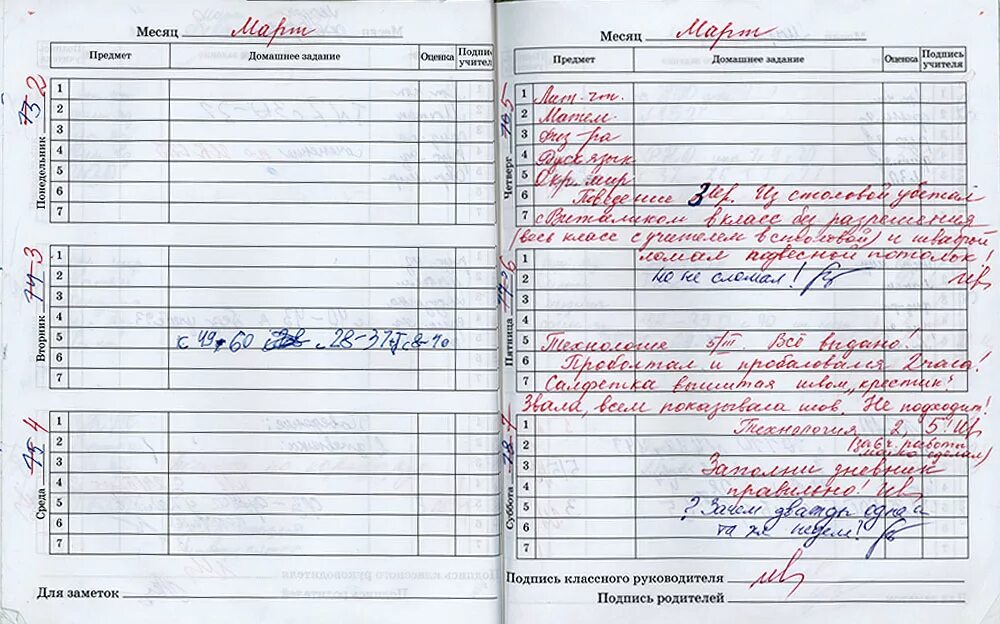 Месяц Март
Предмет Домашнее задание Оценка Подпись учителя
Понедельник 2
1
2
3
4
5
6
7
Вторник 3
1
2
3
4
5 с 49, 60 28-37 с 8-10
6
7
Среда 4
1
2
3
4
5
6
7
Для заметок
Месяц Март
Предмет Домашнее задание Оценка Подпись учителя
Четверг 5
1 Лит. чт.
2 Матем.
3 Физ-ра
4 Русск язык
5 Окр. мир
6 Поведение 3 Из столовой убежал
7 с Виталиком в класс без разрешения
(весь класс с учителем в столовой) и шваброй
Пятница 6
1 ломал подвесной потолок!
2 Но не сломал!
3
4
5 Технология 5/III. Всё выдано!
6 Проболтал и пробаловался 2 часа!
7 Салфетка вышитая швом „крестик".
Звала, всем показывала шов. Не подходит!
Суббота 7
1 Технология 2, 5!
2 (за 6 ч. работы мало сделал)
3 Заполни дневник
4 правильно!
5 ? Зачем дважды одна и
6 та же неделя?
7
Подпись классного руководителя
Подпись родителей